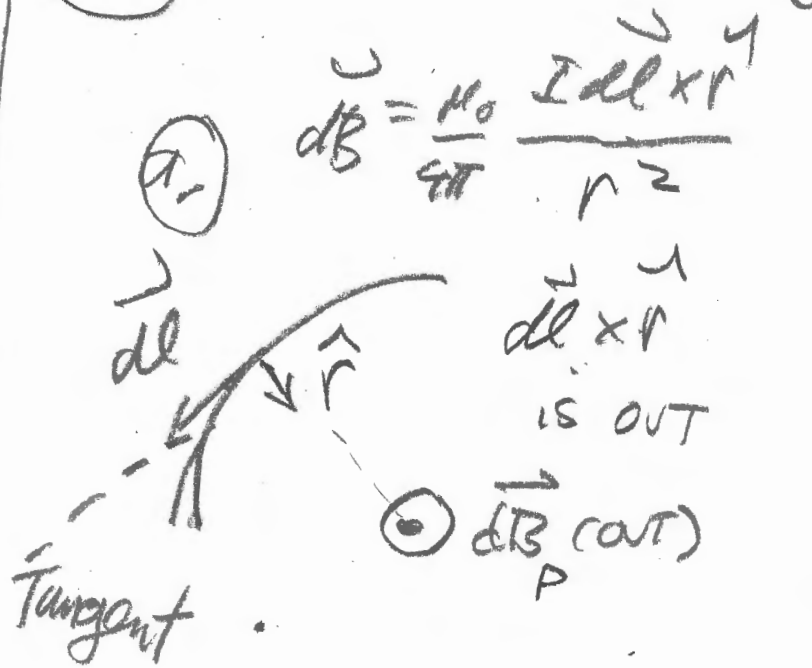 a.
dB⃗ = μ₀/4π I dl⃗ × r̂ / r²
dl⃗
r̂
dl⃗ × r̂
IS OUT
dB⃗ₚ (OUT)
Tangent